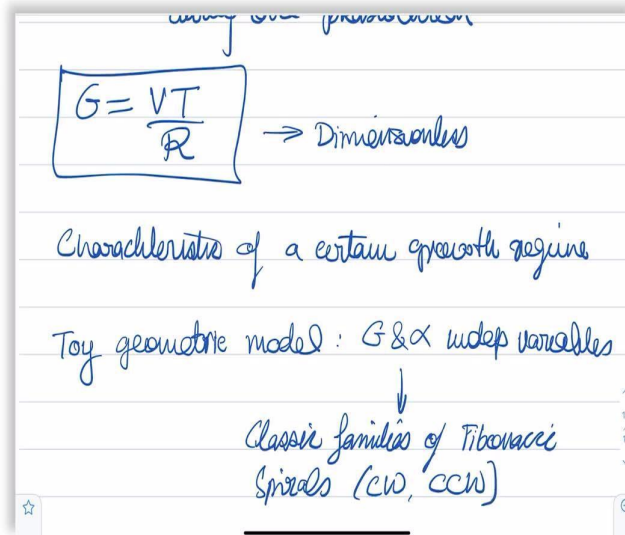 G = VT / R → Dimensionless
Charachteristic of a certain growth regime
Toy geometric model : G & α indep variables
↓
Classic families of Fibonacci
Spirals (CW, CCW)